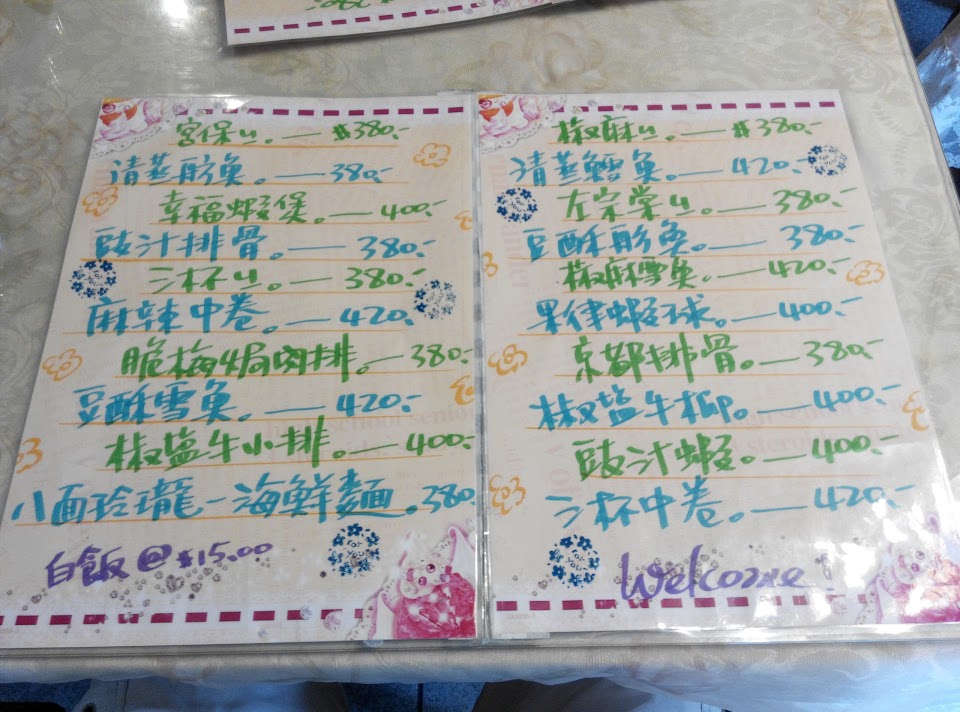 宮保ㄐ。—$380.-
清蒸魴魚。—380.-
幸福蝦煲。—400.-
豉汁排骨。—380.-
三杯ㄐ。—380.-
麻辣中卷。—420.-
脆梅焗肉排。—380.-
豆酥雪魚。—420.-
椒盐牛小排。—400.-
八面玲瓏-海鮮麵。380.
白飯@$15.00
椒麻ㄐ。—$380.-
清蒸鱈魚。—420.-
左宗棠ㄐ。—380.-
豆酥魴魚。—380.-
椒麻雪魚。—420.-
果律蝦球。—400.-
京都排骨。—380.-
椒盐牛柳。—400.-
豉汁蝦。—400.-
三杯中卷。—420.-
Welcome!